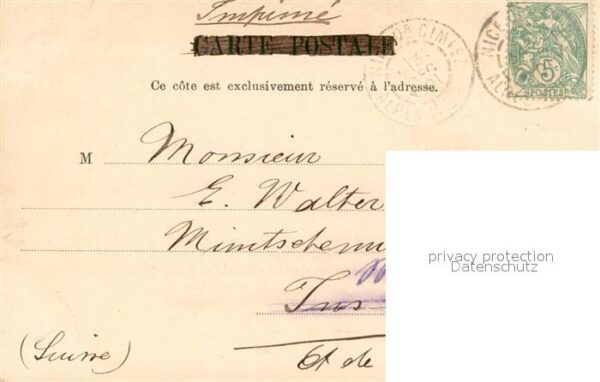 Imprimé
CARTE POSTALE
Ce côte est exclusivement réservé à l'adresse.
5
POSTES
M Monsieur
E. Walter
privacy protection
Datenschutz
Ins
(Suisse)
Ct de